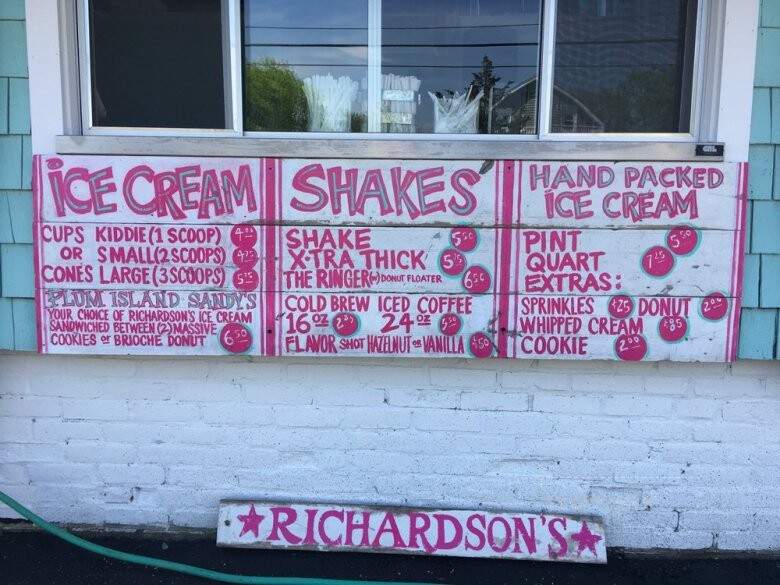 ICE CREAM
CUPS KIDDIE (1 SCOOP)
OR SMALL (2 SCOOPS) 4.75
CONES LARGE (3 SCOOPS) 5.25
PLUM ISLAND SANDY'S
YOUR CHOICE OF RICHARDSON'S ICE CREAM
SANDWICHED BETWEEN (2) MASSIVE
COOKIES OR BRIOCHE DONUT 6.50
SHAKES
SHAKE 5.50
X-TRA THICK 5.75
THE RINGER (W) DONUT FLOATER 6.50
COLD BREW ICED COFFEE
16 OZ 24 OZ
FLAVOR SHOT HAZELNUT OR VANILLA .50
HAND PACKED
ICE CREAM
PINT 5.50
QUART 7.25
EXTRAS:
SPRINKLES .25 DONUT 2.00
WHIPPED CREAM .85
COOKIE 2.00
★RICHARDSON'S★